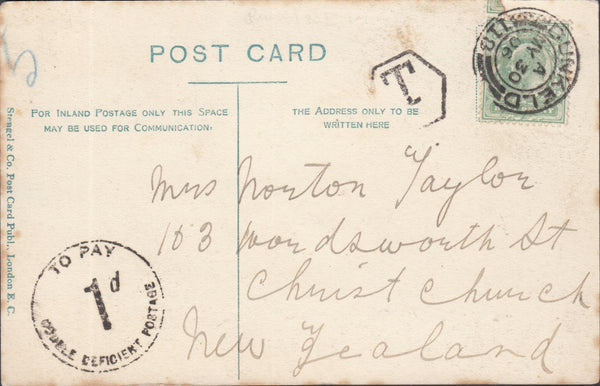 POST CARD
FOR INLAND POSTAGE ONLY THIS SPACE
MAY BE USED FOR COMMUNICATION.
THE ADDRESS ONLY TO BE
WRITTEN HERE
T
DUNKELD
Mrs Norton Taylor
103 Wordsworth St
Christ Church
New Zealand
TO PAY
1d
DOUBLE DEFICIENT POSTAGE
Stengel & Co. Post Card Publ., London E. C.